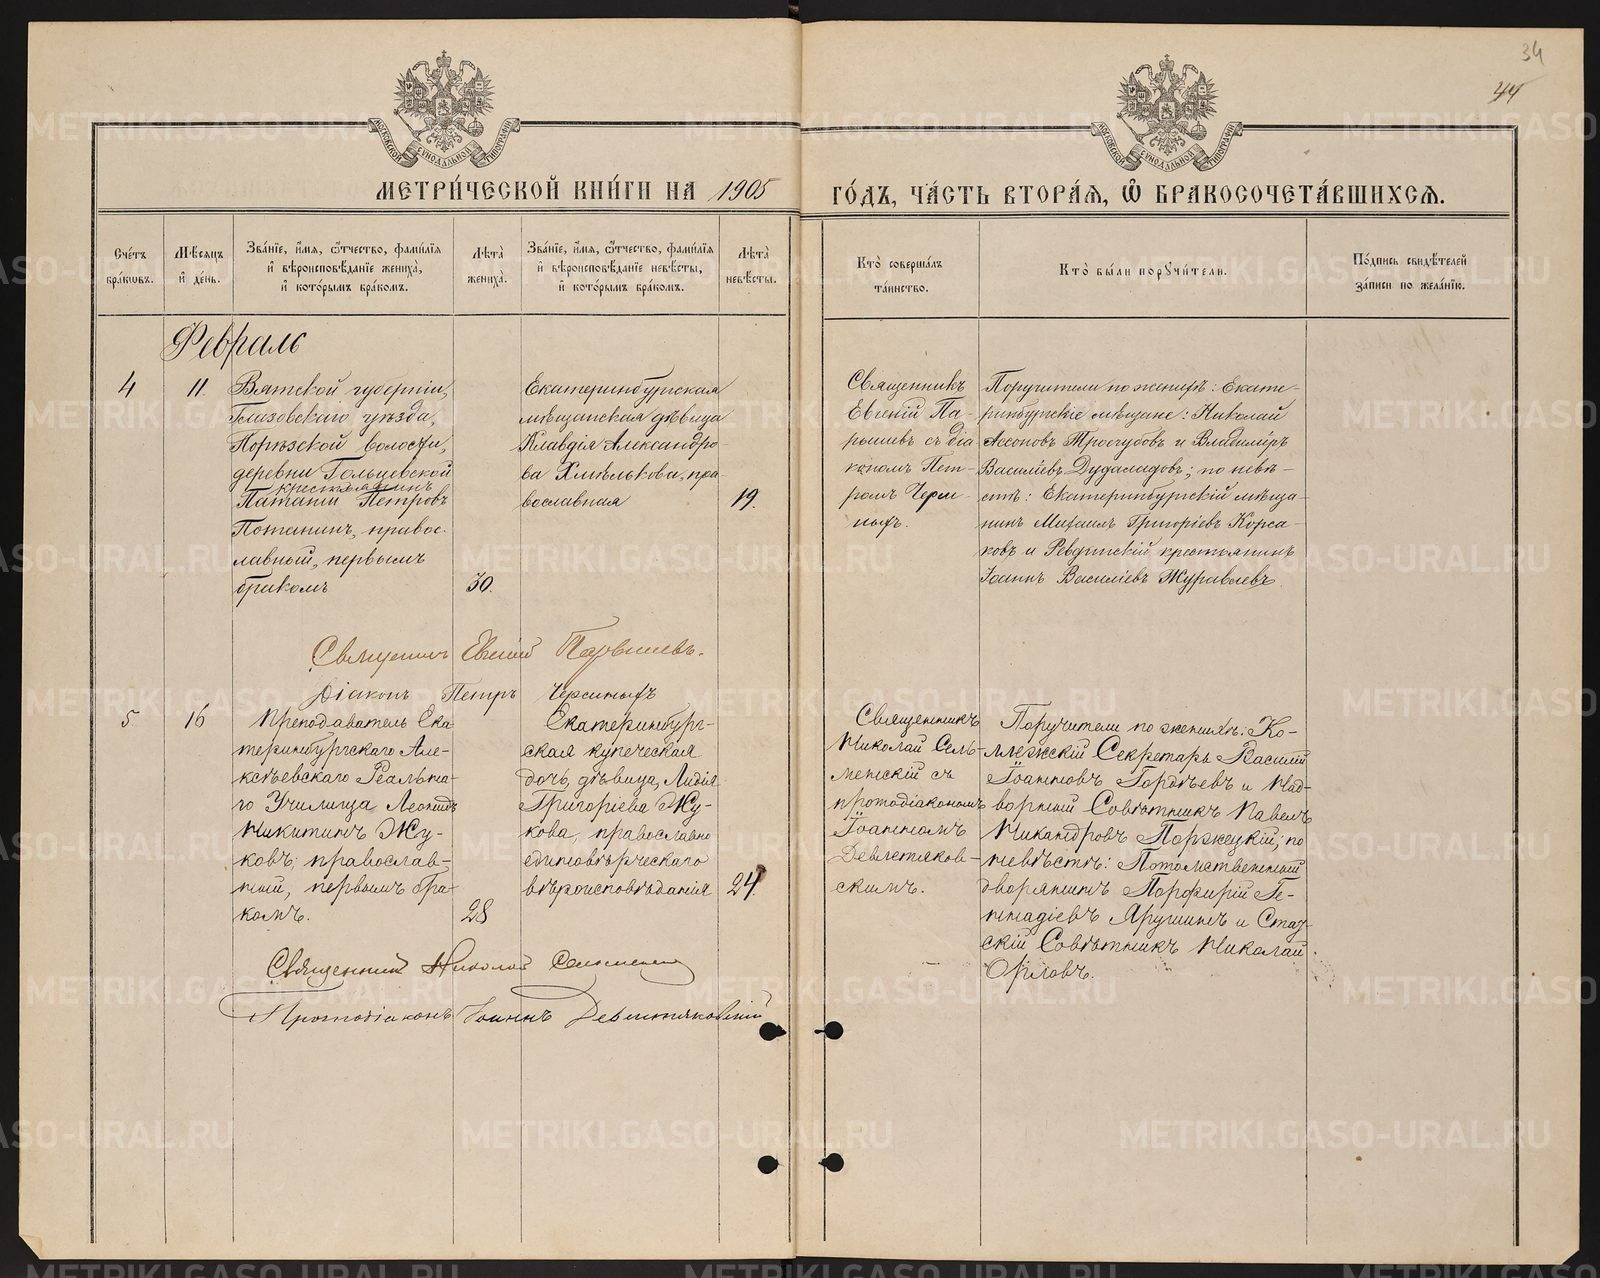 34
44
МЕТРИ́ЧЕСКОЙ КНИ́ГИ НА 1905 ГО́ДЪ, ЧА́СТЬ ВТОРА́Я, Ѿ БРАКОСОЧЕТА́ВШИХСЯ.
МОСКОВСКОЙ СѴНОДАЛЬНОЙ ТИПОГРАФІИ
МОСКОВСКОЙ СѴНОДАЛЬНОЙ ТИПОГРАФІИ
Сче́тъ
бра́кѡвъ.
Мѣ́сяцъ
и҆ де́нь.
Зва́нїе, и҆́мя, ѻ҆́тчество, фами́лїя
и҆ вѣроисповѣ́данїе жениха̀,
и҆ кото́рымъ бра́комъ.
Лѣта̀
жениха̀.
Зва́нїе, и҆́мя, ѻ҆́тчество, фами́лїя
и҆ вѣроисповѣ́данїе невѣ́сты,
и҆ кото́рымъ бра́комъ.
Лѣта̀
невѣ́сты.
Кто̀ соверша́лъ
та́инство.
Кто̀ бы́ли порꙋчи́тели.
По́дпись свидѣ́телей
за́писи по жела́нїю.
Февраль
4
11.
Вятской губерніи,
Глазовскаго уѣзда,
Порѣзской волости,
деревни Гольцовской
крестьянинъ
Петровъ
Потанинъ, правос-
лавный, первымъ
бракомъ
30.
Екатеринбургская
мѣщанская дѣвица
Клавдія Александро
ва Хмѣлькова, пра-
вославная
19.
Священникъ
Евгеній Па-
рышевъ съ діа
кономъ Пет-
ромъ Черм-
ныхъ.
Поручители по женихѣ: Екате-
ринбургскіе мѣщане: Николай
Ассоновъ Трогубовъ и Владиміръ
Васильевъ по невѣ-
стѣ: Екатеринбургскій мѣща-
нинъ Михаилъ Григорьевъ Корса-
ковъ и Ревдинскій крестьянинъ
Іоаннъ Василіевъ Журавлевъ.
Священникъ Евгеній Парышевъ.
Діаконъ Петръ Черемныхъ
5
16
Преподаватель Ека
теринбургскаго Але-
ксѣевскаго Реальна-
го Училища Леонидъ
Никитинъ Жу-
ковъ; православ-
ный, первымъ бра-
комъ.
28
Екатеринбург-
ская купеческая
дочь, дѣвица, Лидія
Григоріева Жу-
кова, православно
единовѣрческаго
вѣроисповѣданія
24
Священникъ
Николай Сель-
менскій съ
протодіакономъ
Іоанномъ
Девлетяков-
скимъ.
Поручители по женихѣ: Ко-
ллежскій Секретарь Василій
Іоанновъ Гордѣевъ и Над-
ворный Совѣтникъ Павелъ
Никандровъ Поржецкій; по
невѣстѣ: Потомственный
дворянинъ Порфирій Ге-
ннадіевъ Ярушинъ и Стат-
скій Совѣтникъ Николай
Орловъ.
Священникъ Николай Сельменскій
Протодіаконъ Іоаннъ Девлетяковскій
METRIKI.GASO-URAL.RU